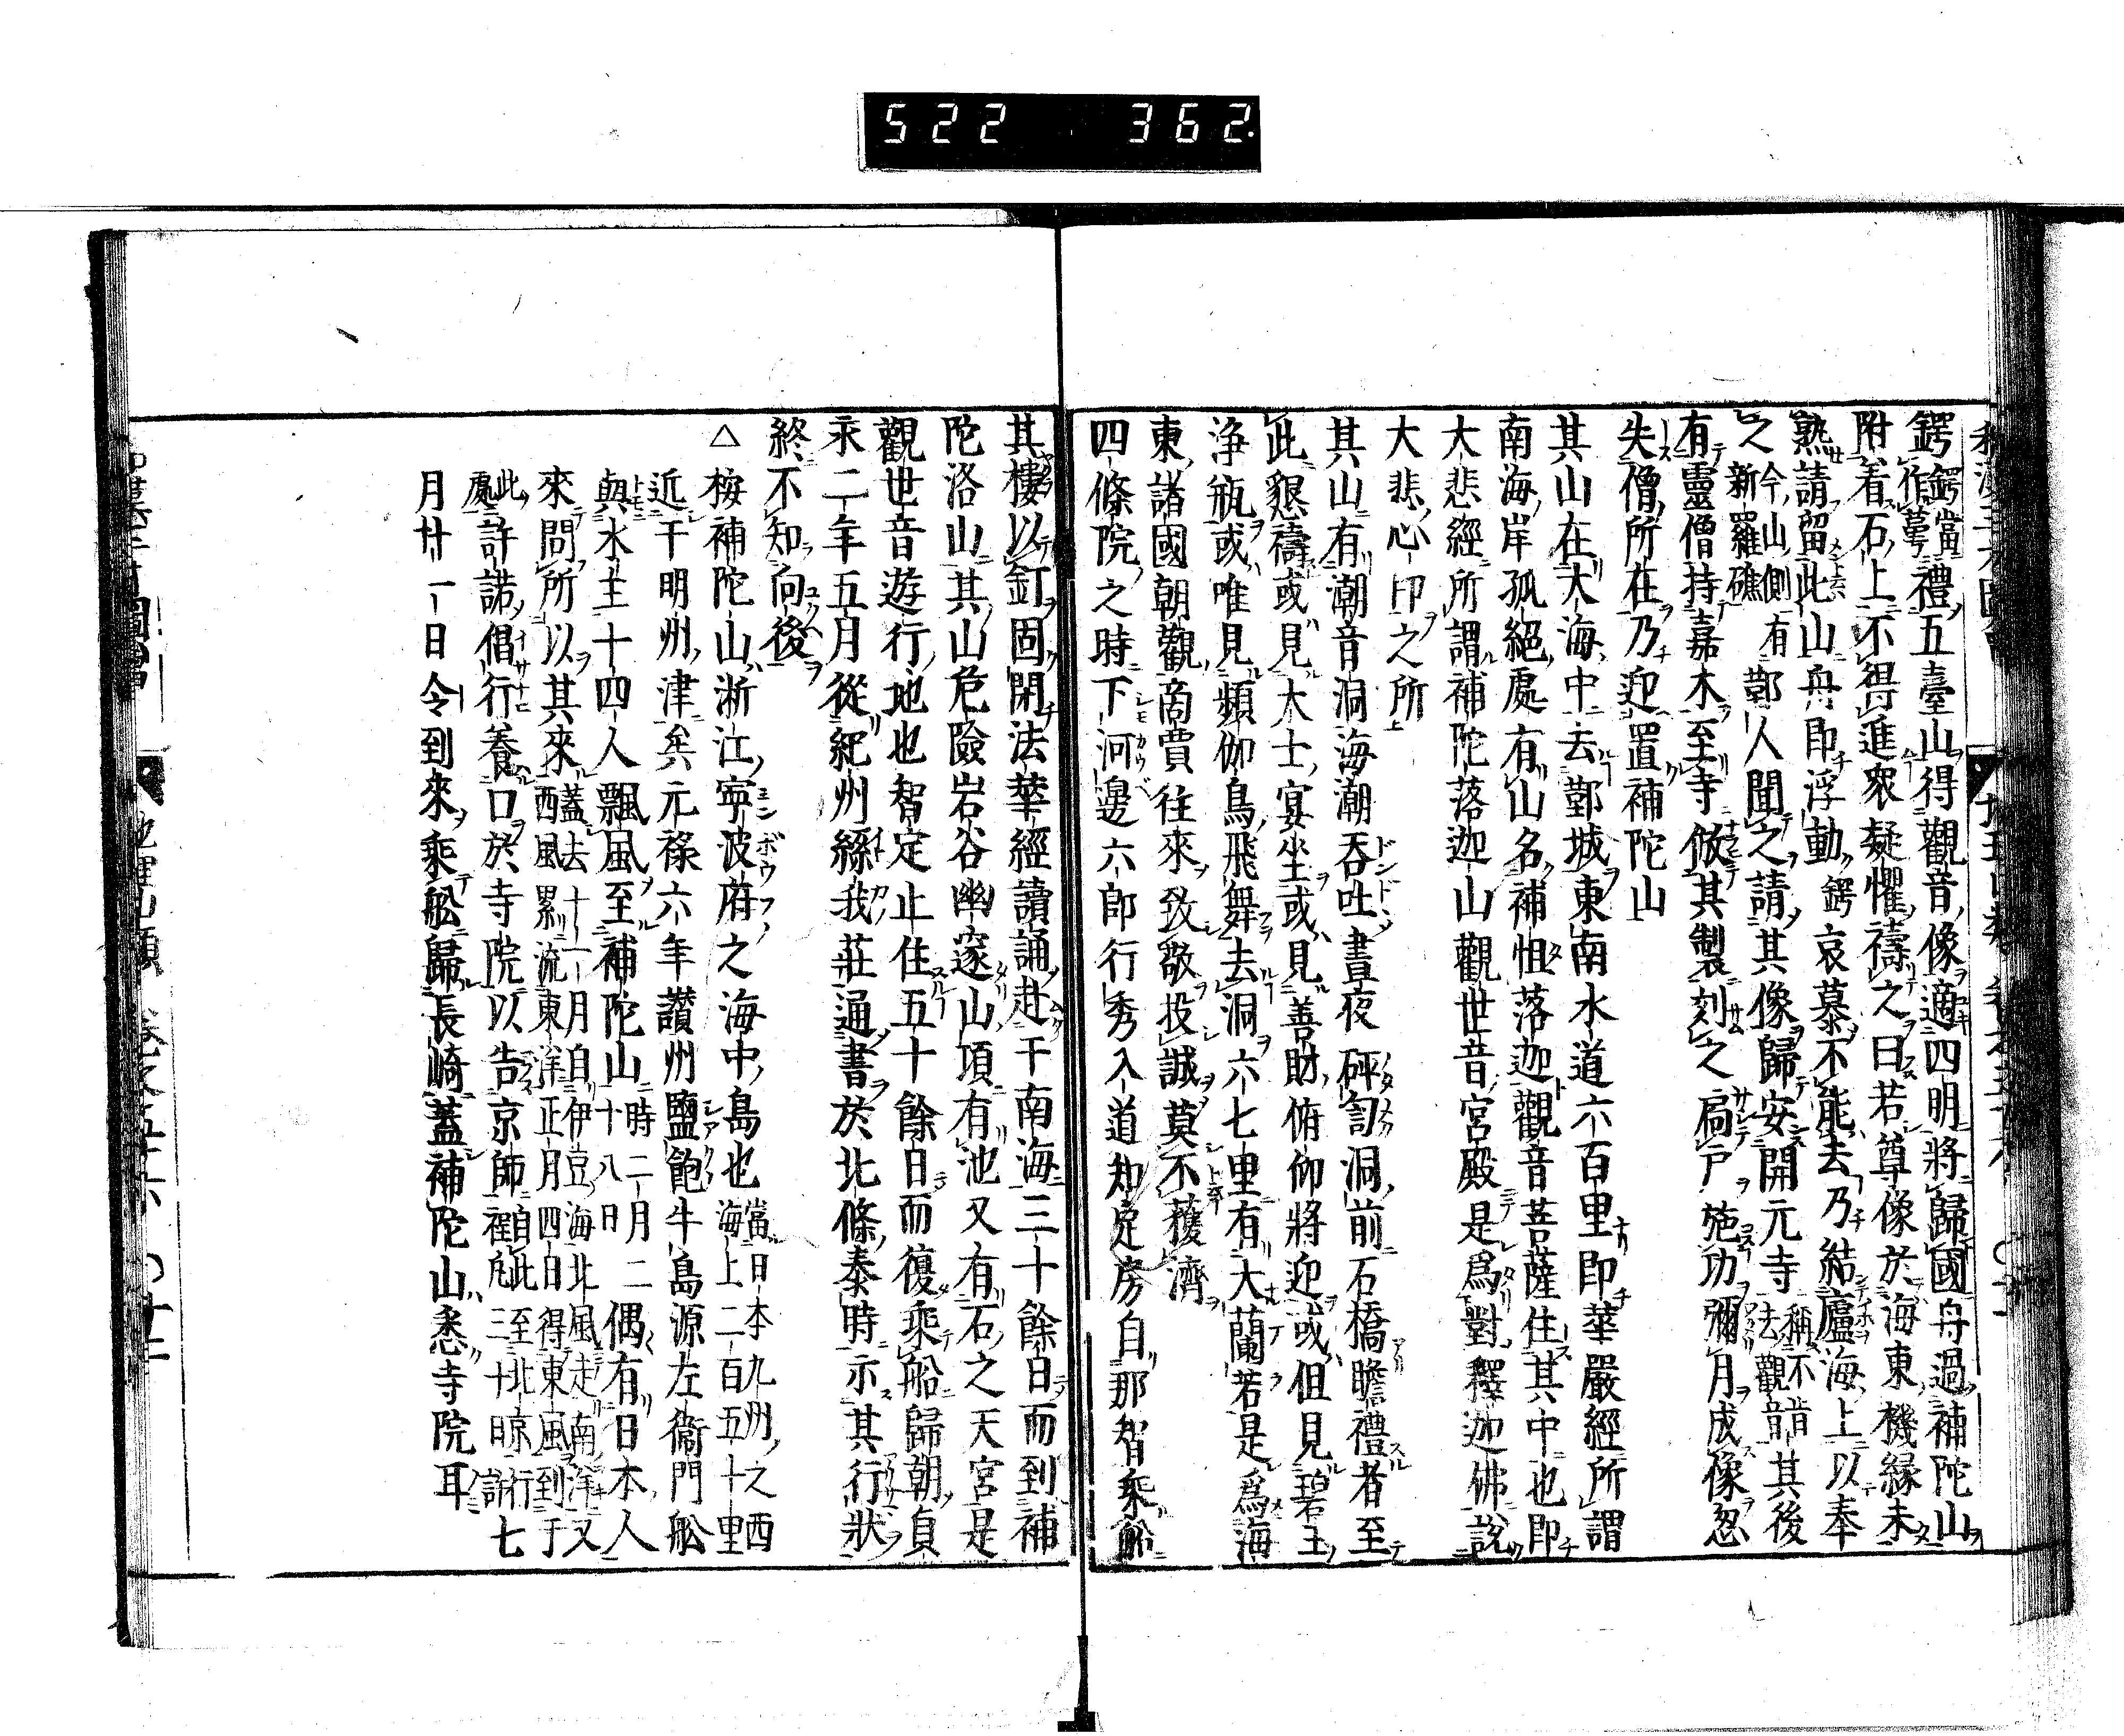 522 362
鍔鍔當作萼禮五臺山得觀音像適四明將歸國舟過補陀山
附着石上不得進衆疑懼禱之曰若尊像於海東機縁未
熟請留此山舟即浮動鍔哀慕不能去乃結廬海上以奉
之今山側有新羅礁鄞人聞之請其像歸安開元寺稱不肯去觀音其後
有靈僧持嘉木至寺倣其製刻之扃戸施功彌月成像忽
失僧所在乃迎置補陀山
其山在大海中去鄞城東南水道六百里即華嚴經所謂
南海岸孤絕處有山名補怛落迦觀音菩薩住其中也即
大悲經所謂補陀落迦山觀世音宮殿是爲對釋迦佛説
大悲心印之所
其山有潮音洞海潮吞吐晝夜砰訇洞前石橋瞻禮者至
此懇禱或見大士宴坐或見善財俯仰將迎或但見碧玉
淨瓶或唯見頻伽鳥飛舞去洞六七里有大蘭若是爲海
東諸國朝觀商賈往來致敬投誠莫不穫濟
四條院之時下河邊六郎行秀入道知定房自那智乘船
其樓以釘固閉法華經讀誦赴于南海三十餘日而到補
陀洛山其山危險岩谷幽邃山項有池又有石之天宮是
觀世音遊行地也智定止住五十餘日而復乘船歸朝貞
永二年五月從紀州絲我莊通書於北條泰時示其行狀
終不知向後
△ 桉補陀山浙江寧波府之海中島也當日本九州之西海上二百五十里
近于明州津矣元祿六年讃州鹽飽牛島源左衞門舩
與水主十四人飄風至補陀山時二月二十八日偶有日本人
來問所以其來蓋去十一月自伊豆海北風走南洋又西風累流東洋正月四日得東風到于
此處許諾倡行養口於寺院以告京師自此至北京行程凡三十日許七
月廿一日令到來乘舩歸長崎蓋補陀山悉寺院耳